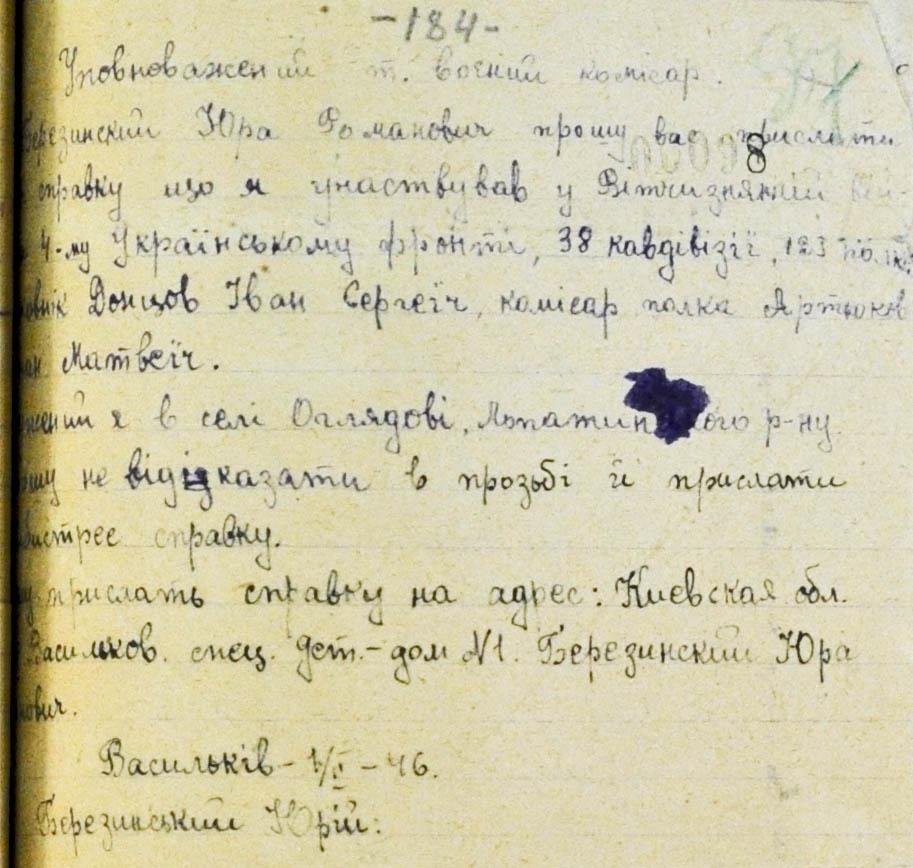 -184-
Уповноважений т. воєний комісар.
Березинский Юра Романович прошу вас прислати
справку що я участвував у Вітчизняній вій-
4-му Українському фронті, 38 кавдівізії, 123 полк,
Донцов Іван Сергеїч, комісар полка Артюхов
Матвеїч.
я в селі Оглядові, Лопатин кого р-ну.
не відіцказати в прозьбі й прислати
бистрее справку.
прислать справку на адрес: Киевская обл.
Васильков. спец. дет.-дом N1. Березинский Юра
ович.
Васильків - 1/І - 46.
Березинський Юрій: